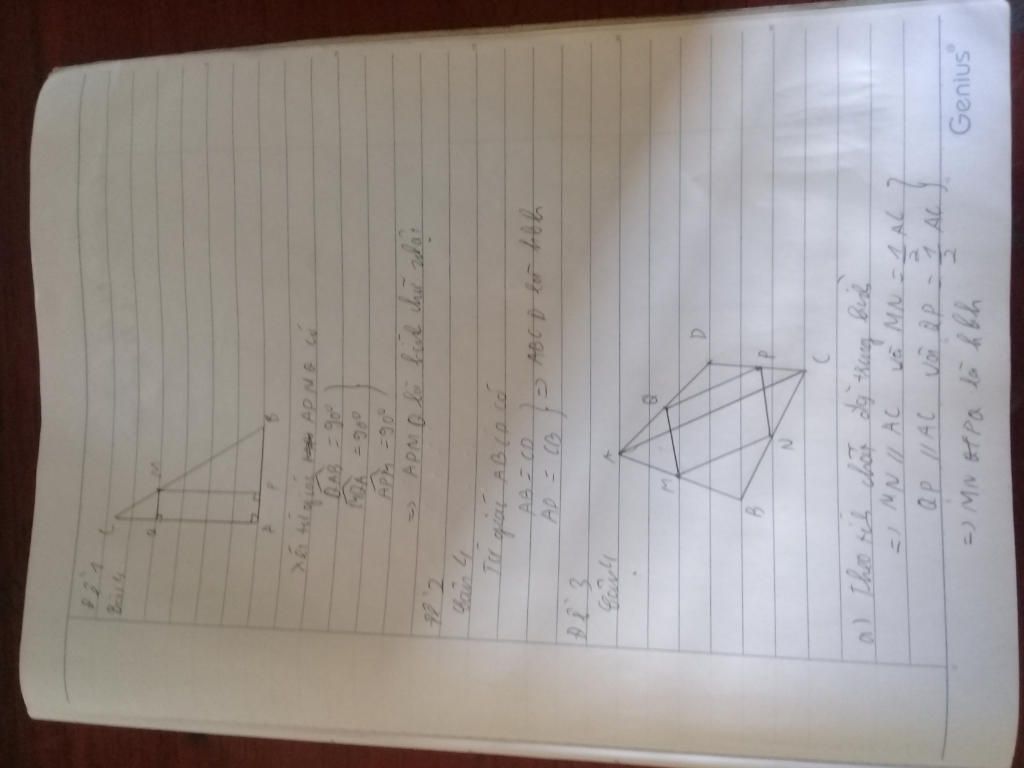 Đề 1
Bài 4
C
Q
M
A
P
B
Xét tứ giác APMQ có
QAB = 90°
MQA = 90°
APM = 90°
=> APMQ là hình chữ nhật
Đề 2
Bài 4
Tứ giác ABCD có
AB = CD
AD = CB } => ABCD là hbh
Đề 3
Bài 4
A
Q
D
M
P
B
N
C
a) Theo tính chất đg trung bình
=> MN // AC và MN = 1/2 AC
QP // AC và QP = 1/2 AC }
=> MN PQ là hbh
Genius